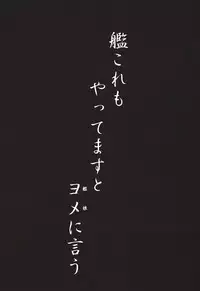 艦これも
やってますと
ヨメに言う